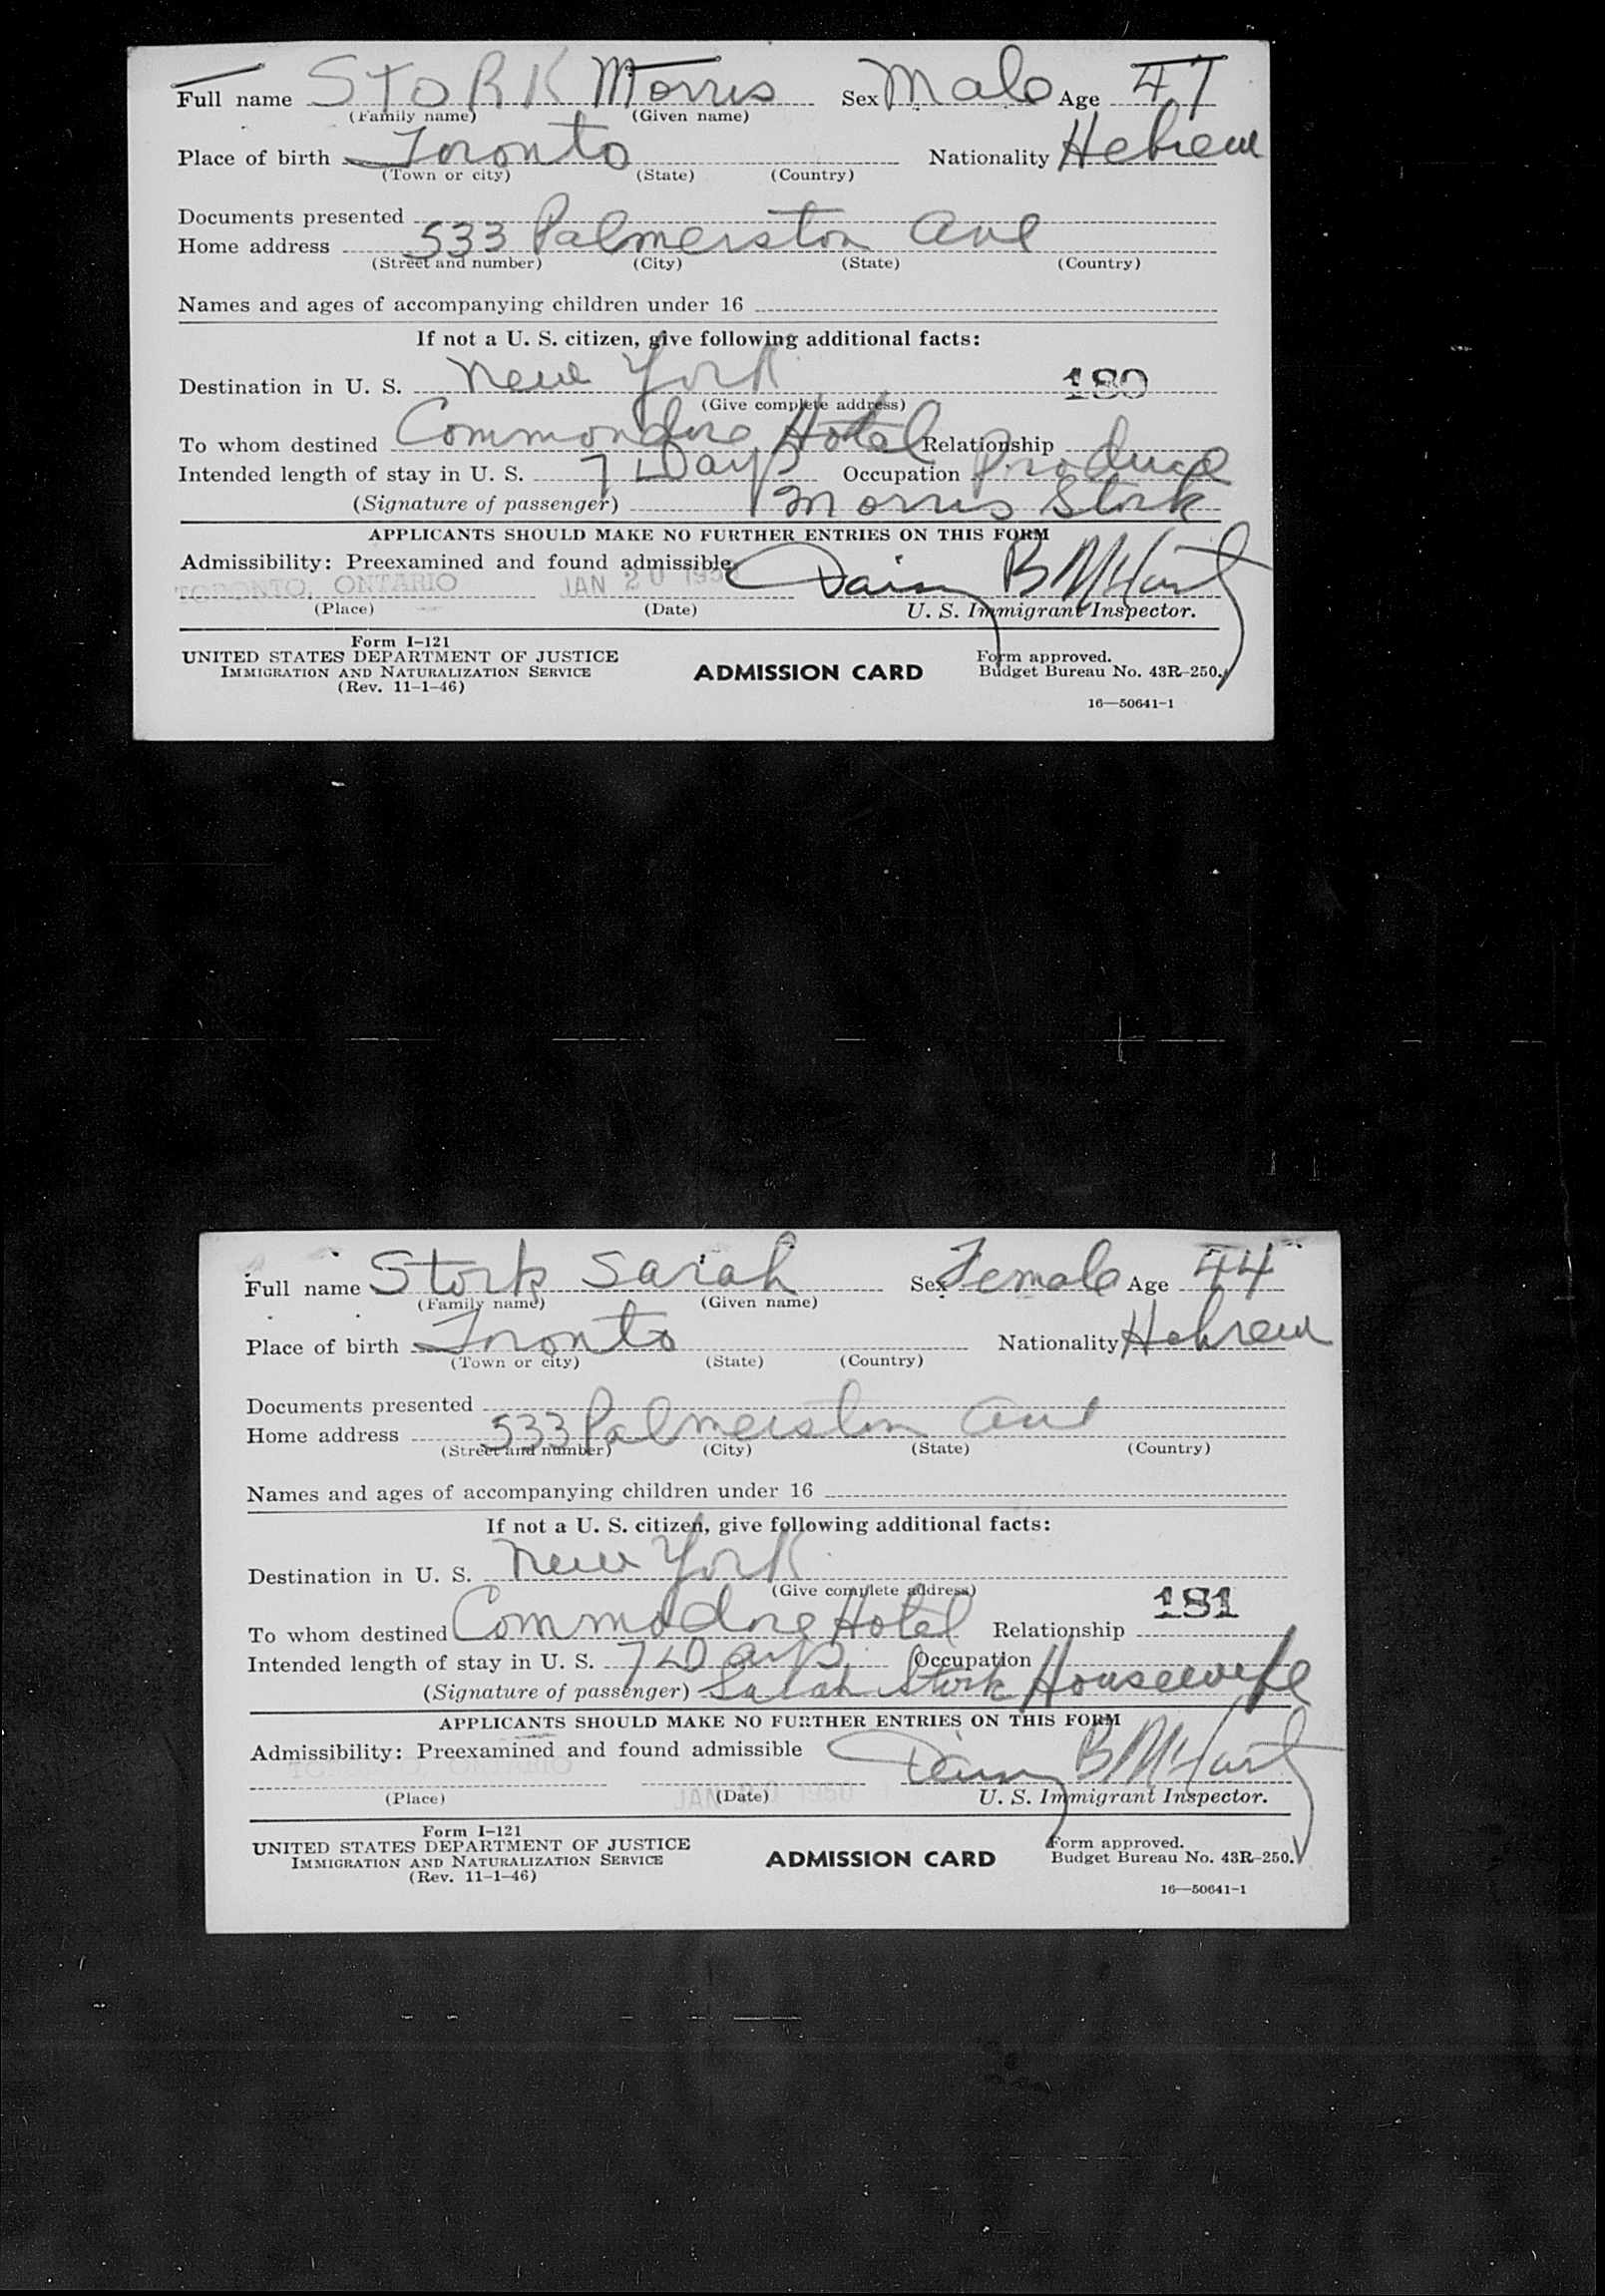 Full name STORK Morris Sex Male Age 47
(Family name) (Given name)
Place of birth Toronto Nationality Hebrew
(Town or city) (State) (Country)
Documents presented
Home address 533 Palmerston Ave
(Street and number) (City) (State) (Country)
Names and ages of accompanying children under 16
If not a U. S. citizen, give following additional facts:
Destination in U. S. New York 180
(Give complete address)
To whom destined Commondore Hotel Relationship
Intended length of stay in U. S. 7 Days Occupation Produce
(Signature of passenger) Morris Stork
APPLICANTS SHOULD MAKE NO FURTHER ENTRIES ON THIS FORM
Admissibility: Preexamined and found admissible
TORONTO, ONTARIO JAN 20
(Place) (Date) U. S. Immigrant Inspector.
Form I-121
UNITED STATES DEPARTMENT OF JUSTICE
IMMIGRATION AND NATURALIZATION SERVICE
(Rev. 11-1-46)
ADMISSION CARD
Form approved.
Budget Bureau No. 43R-250.
16—50641-1
Full name Stork Sarah Sex Female Age 44
(Family name) (Given name)
Place of birth Toronto Nationality Hebrew
(Town or city) (State) (Country)
Documents presented
Home address 533 Palmerston Ave
(Street and number) (City) (State) (Country)
Names and ages of accompanying children under 16
If not a U. S. citizen, give following additional facts:
Destination in U. S. New York
(Give complete address) 181
To whom destined Commodore Hotel Relationship
Intended length of stay in U. S. 7 Days Occupation Housewife
(Signature of passenger) Sarah Stork
APPLICANTS SHOULD MAKE NO FURTHER ENTRIES ON THIS FORM
Admissibility: Preexamined and found admissible
TORONTO, ONTARIO
JAN 20 1950
(Place) (Date) U. S. Immigrant Inspector.
Form I-121
UNITED STATES DEPARTMENT OF JUSTICE
IMMIGRATION AND NATURALIZATION SERVICE
(Rev. 11-1-46)
ADMISSION CARD
Form approved.
Budget Bureau No. 43R-250.
16—50641-1